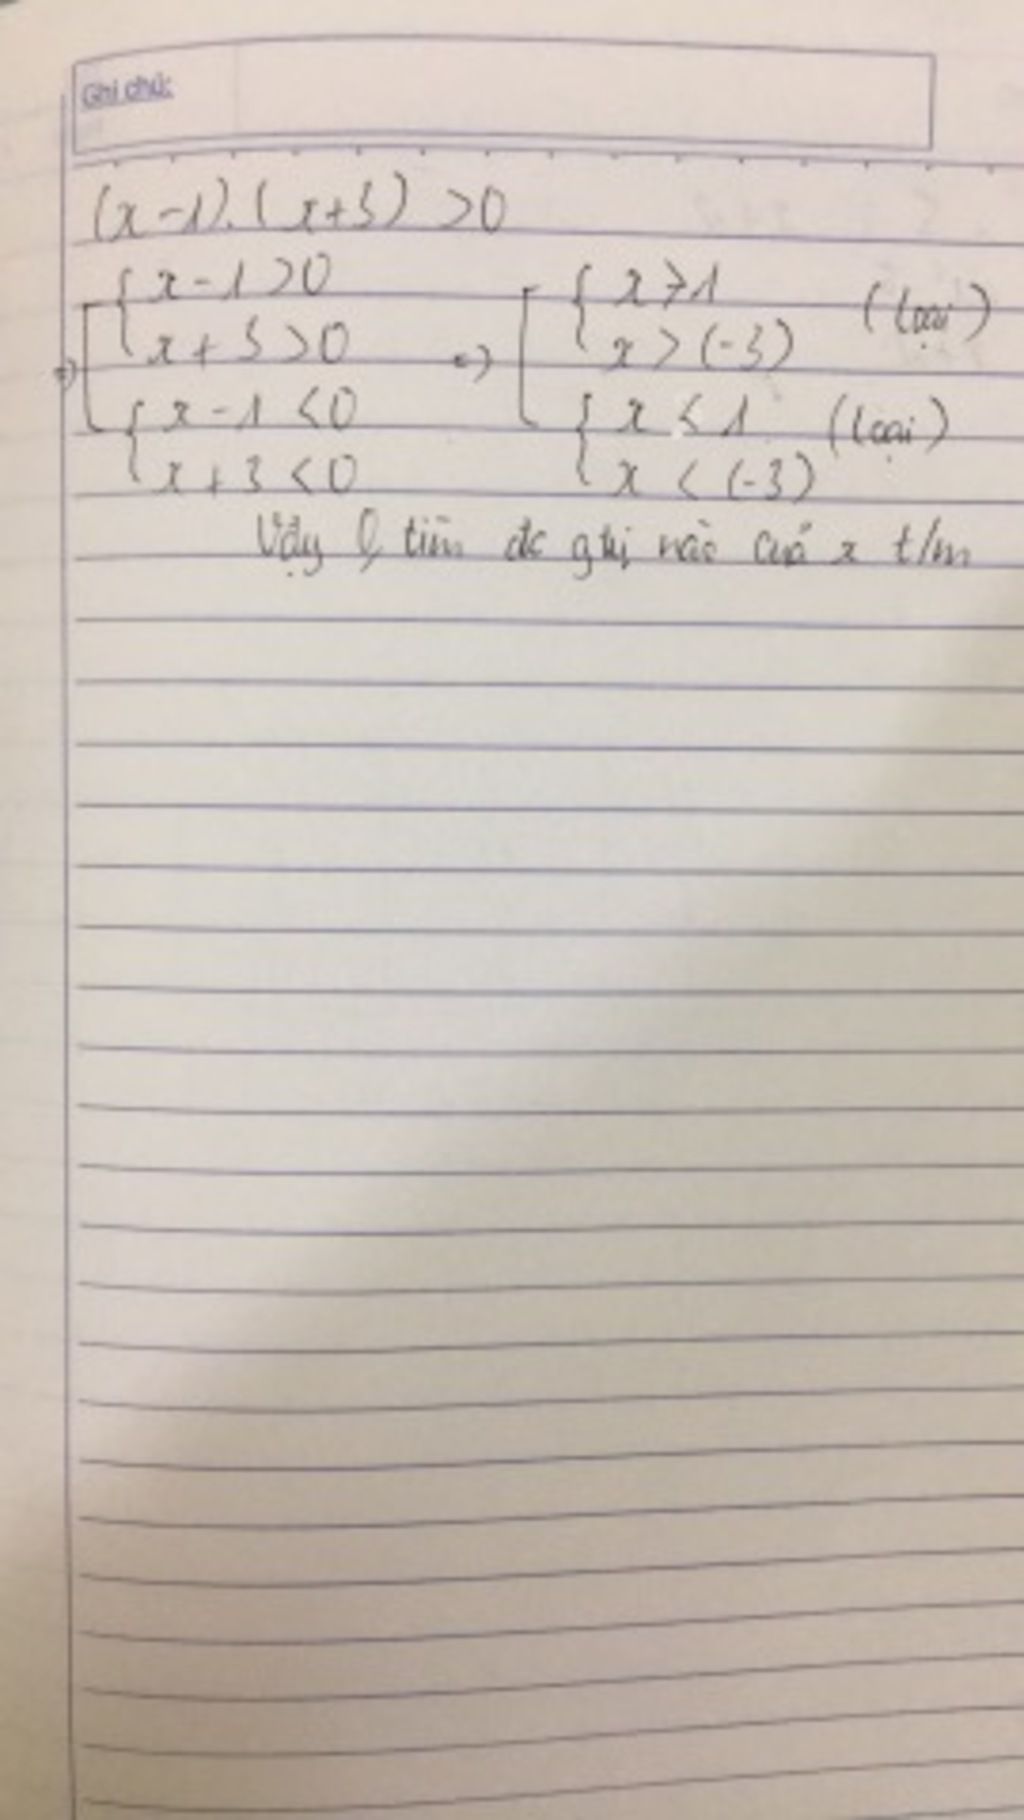 Ghi chú:
(x-1).(x+3) >0
{ x-1>0
{ x+3>0
{ x-1 <0
{ x+3<0
=> [ { x>1 (loại)
{ x>(-3)
{ x<1 (loại)
{ x < (-3)
Vậy tìm đc gtrị nào của x t/m